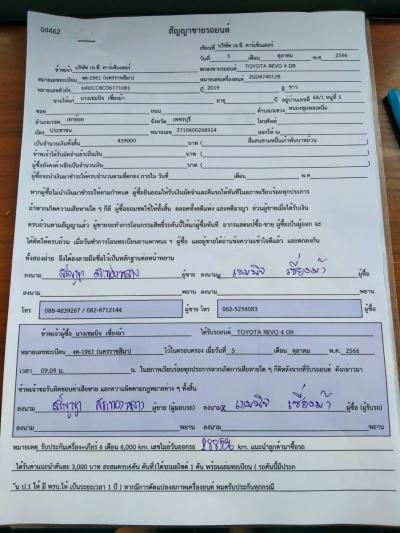 04462 สัญญาขายรถยนต์
เขียนที่ บริษัท เจ.ที. คาร์เซ็นเตอร์
วันที่ 5 ตุลาคม พ.ศ. 2566
ข้าพเจ้า บริษัท เจ.ที. คาร์เซ็นเตอร์ TOYOTA REVO 4 DR
หมายเลขทะเบียน งค-1961 (นครราชสีมา) หมายเลขเครื่องยนต์ 2GD4740128
หมายเลขตัวถัง MR0CC8CD6771081 ปี 2019 สี ขาว
ขายให้แก่ นายเชมนิจ เชี่ยงม้า อายุ ปี อยู่บ้านเลขที่ 64/1 หมู่ที่ 5
ซอย ถนน ตำบล/แขวง หนองชุมพลเหนือ
อำเภอ/เขต เขาย้อย จังหวัด เพชรบุรี โทรศัพท์
บัตร ประชาชน หมายเลข 3710600268924 ออกให้ ณ
เป็นจำนวนเงินทั้งสิ้น 439000 บาท ( สี่แสนสามหมื่นเก้าพันบาทถ้วน )
ข้าพเจ้าได้รับมัดจำแล้วเป็นเงิน บาท ( )
ผู้ซื้อยังคงค้างอีกเป็นจำนวนเงิน บาท ( )
ผู้ซื้อจะนำเงินมาชำระให้ครบจำนวนตามที่ตกลง ภายใน วันที่ เดือน พ.ศ.
หากผู้ซื้อไม่นำเงินมาชำระให้ตามกำหนด ผู้ซื้อยินยอมให้ริบเงินมัดจำและคืนรถให้ทันทีในสภาพเรียบร้อยทุกประการ
ถ้าหากเกิดความเสียหายใด ๆ ก็ดี ผู้ซื้อยอมชดใช้ให้ทั้งสิ้น ตลอดทั้งคดีแพ่ง และคดีอาญา ส่วนผู้ขายเมื่อได้รับเงิน
ครบถ้วนตามสัญญาแล้ว ผู้ขายจะทำการโอนกรรมสิทธิ์รถคันนี้ให้แก่ผู้ซื้อทันที
ทั้งสองฝ่าย จึงได้ลงลายมือชื่อไว้เป็นหลักฐานต่อหน้าพยาน
ลงนาม ผู้ขาย ลงนาม เชมนิจ เชี่ยงม้า ผู้ซื้อ
ลงนาม พยาน ลงนาม พยาน
โทร 088-4839267 / 082-8712144 ผู้ขาย โทร 062-5254083 ผู้ซื้อ
ข้าพเจ้าผู้ซื้อ นายเชมนิจ เชี่ยงม้า ได้รับรถยนต์ TOYOTA REVO 4 DR
หมายเลขทะเบียน งค-1961 (นครราชสีมา) ไว้ในครอบครอง เมื่อวันที่ 5 เดือน ตุลาคม พ.ศ. 2566
เวลา 09.09 น. ในสภาพเรียบร้อยทุกประการหากเกิดการเสียหายใด ๆ ก็ดีหลังจากที่รับรถยนต์ ดังกล่าวมา
ข้าพเจ้าขอรับผิดชอบค่าเสียหาย และความผิดตามกฎหมายต่าง ๆ ทั้งสิ้น
ลงนาม ผู้ขาย (ผู้มอบรถ) ลงนาม เชมนิจ เชี่ยงม้า ผู้ซื้อ (ผู้รับรถ)
ลงนาม พยาน ลงนาม พยาน
หมายเหตุ รับประกันเครื่อง+เกียร์ 6 เดือน 6,000 km. เลขไมล์วันออกรถ km. แนะนำลูกค้ามาซื้อรถ
ได้รับค่าแนะนำคันละ 3,000 บาท สะสมครบ6คัน คันที่1ได้รถมอไซด์ 1 คัน พร้อมเล่มทะเบียน ( รถคันนี้มีประก
ัน ป.1 ให้ มี พรบ.ให้ เป็นระยะเวลา 1 ปี ) หากมีการดัดแปลงสภาพเครื่องยนต์ หมดรับประกันทุกกรณี